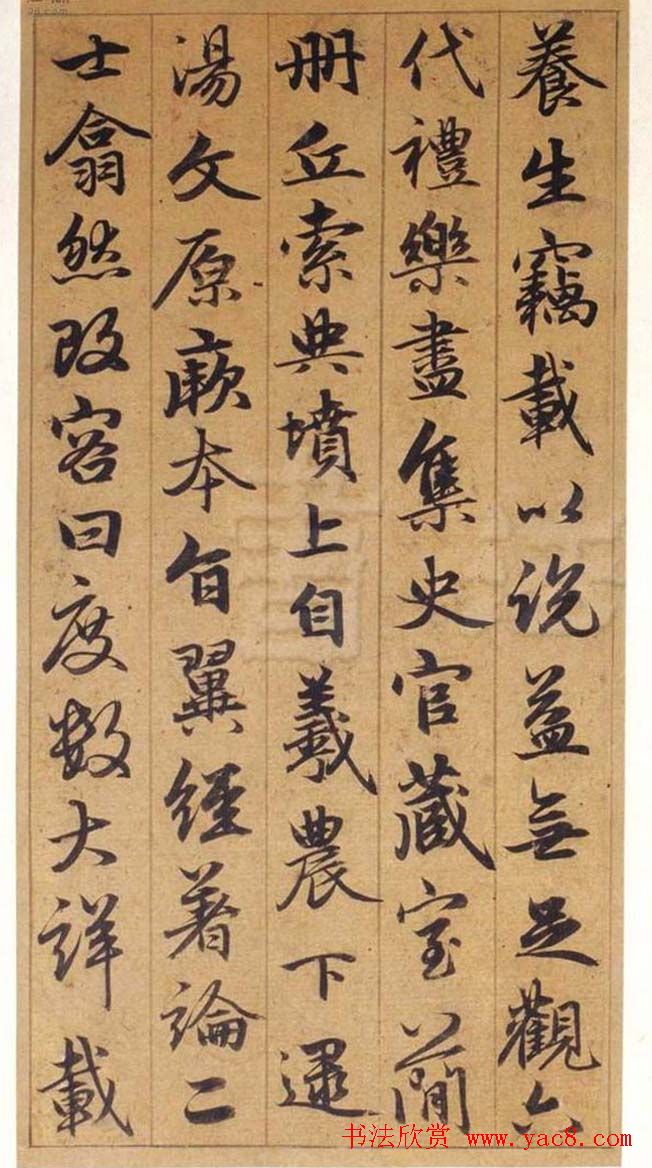 養生竊載以説益無足觀六
代禮樂盡集史官藏室簡
册丘索典墳上自羲農下逮
湯文原厥本旨翼經著論二
士翕然改容曰度数大詳載
书法欣赏 www.yac8.com